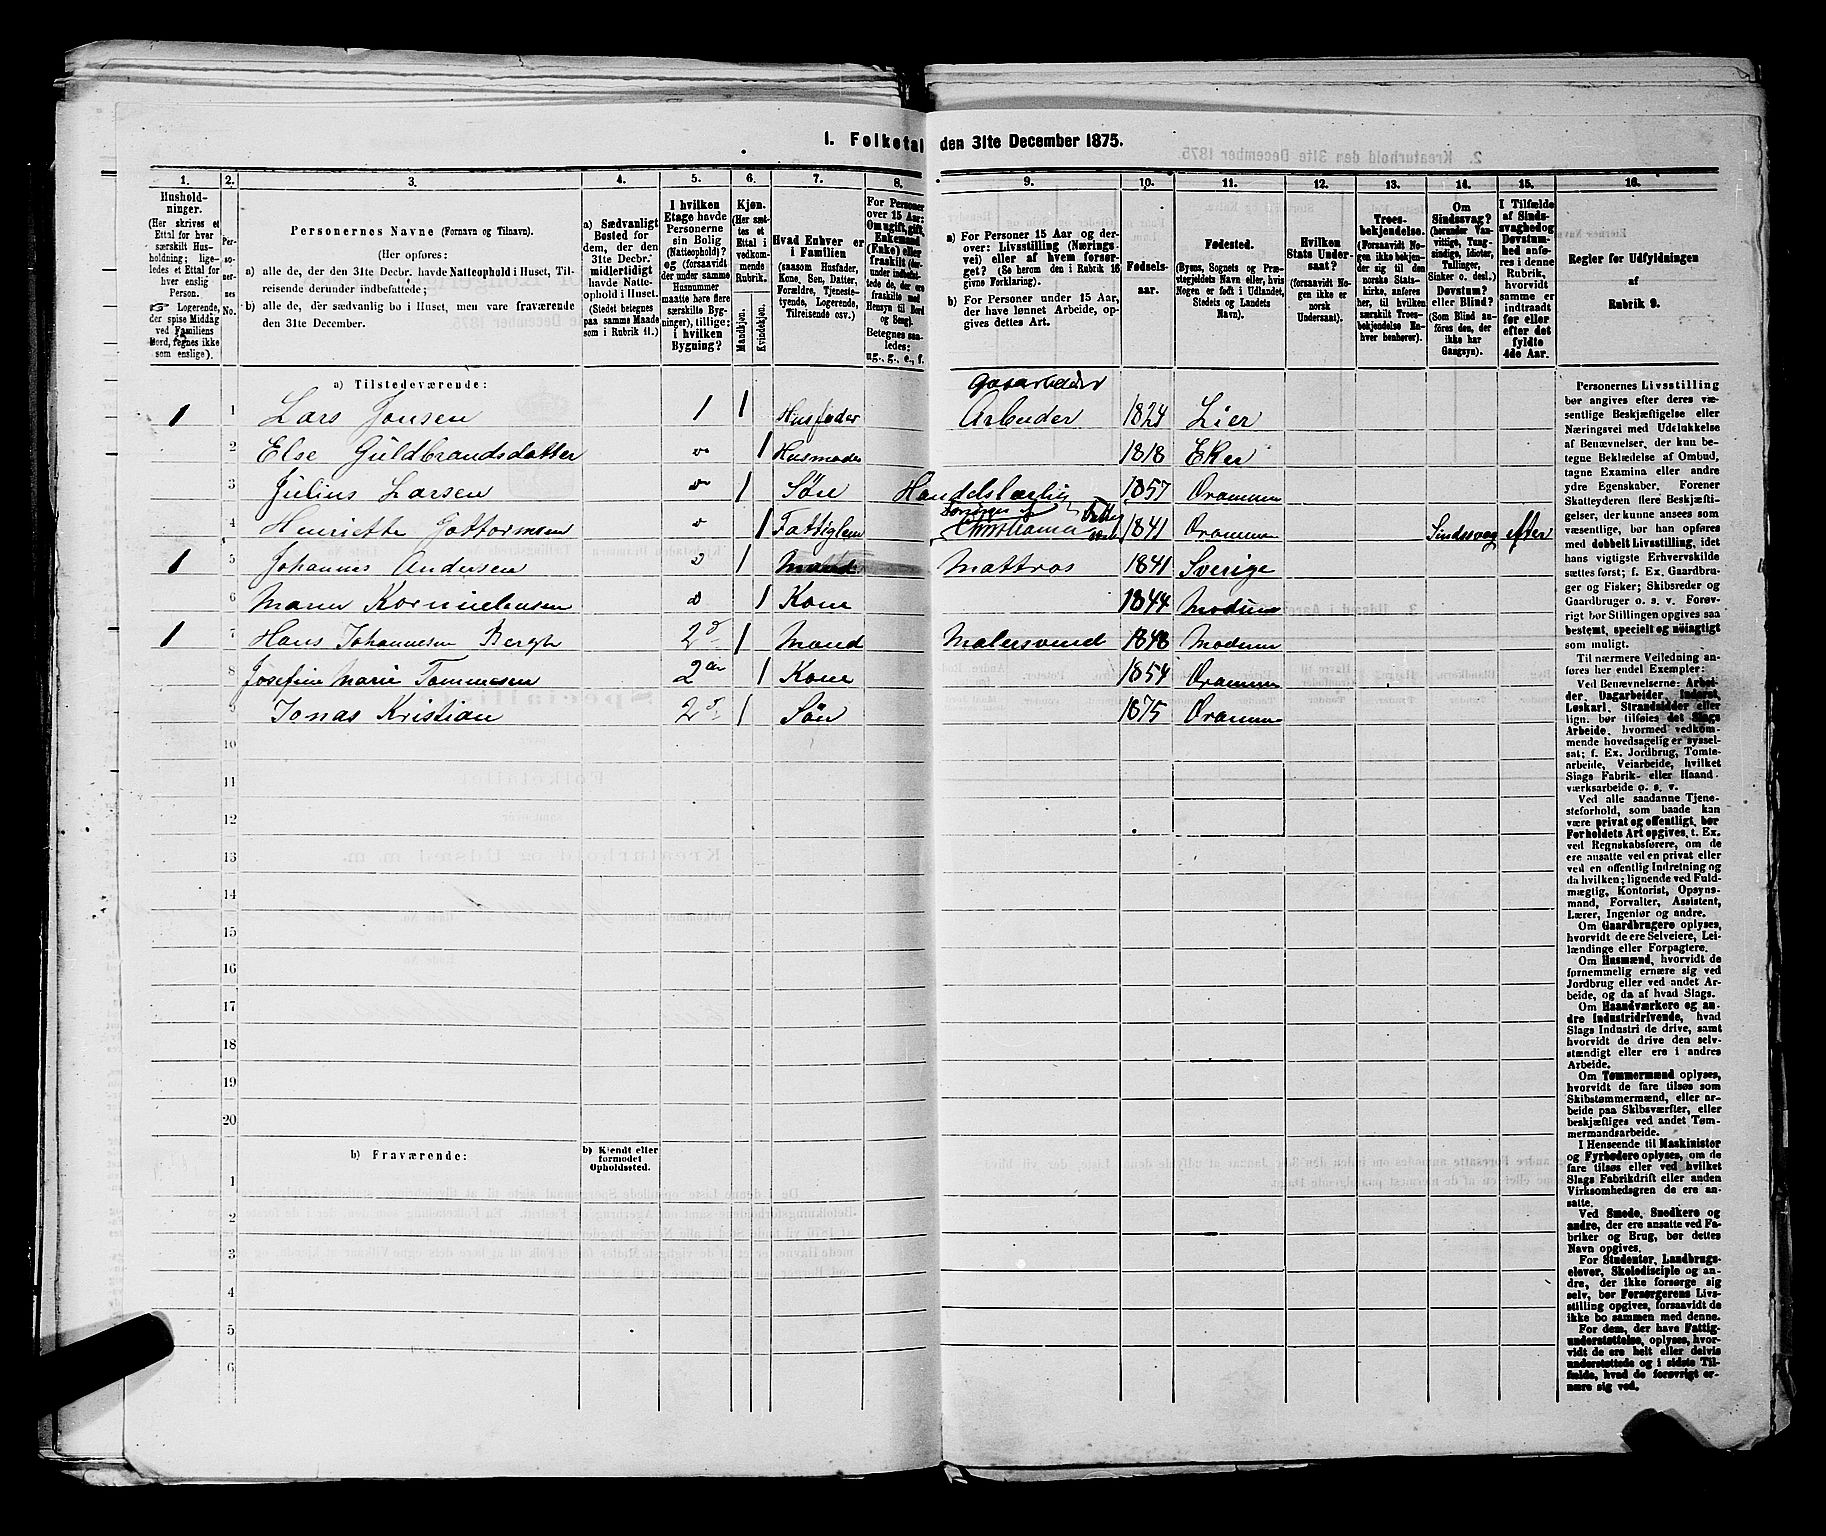 1. Folketal den 31te December 1875.
1. 2. 3. 4. 5. 6. 7. 8. 9. 10. 11. 12. 13. 14. 15. 16.
Hushold-
ninger.
(Her skrives et
Ettal for hver
særskilt Hus-
holdning; lige-
ledes et Ettal for
hver enslig
Person.
Logerende,
der spise Middag
ved Familiens
Bord, regnes ikke
som enslige).
Per-
so-
ner-
nes
No.
Personernes Navne (Fornavn og Tilnavn).
(Her opføres:
a) alle de, der den 31te Decbr. havde Natteophold i Huset, Til-
reisende derunder indbefattede;
b) alle de, der sædvanlig bo i Huset, men vare fraværende
den 31te December.
a) Sædvanligt
Bosted for
dem, der den
31te Decbr.
midlertidigt
havde Natte-
ophold i Huset.
(Stedet betegnes
paa samme Maade
som i Rubrik 11.)
I hvilken
Etage havde
Personerne
sin Bolig
(Natteophold)?
og (forsaavidt
der under samme
Husnummer
maatte høre flere
særskilte Byg-
ninger), tillige:
i hvilken
Bygning?
Kjøn.
(Her sæt-
tes et
Ettal i
vedkom-
mende
Rubrik.)
Mandkjøn.
Kvindekjøn.
Hvad Enhver er
i Familien
(saasom Husfader,
Kone, Søn, Datter,
Forældre, Tjeneste-
tyende, Logerende,
Tilreisende osv.)
For Personer
over 15 Aar:
Om ugift, gift,
Enkemand
(Enke) eller
fraskilt
Betegnes saa-
ledes:
ug., g., e., f.
a) For Personer 15 Aar og der-
over: Livsstilling (Nærings-
vei) eller af hvem forsør-
get? (Se herom den i Rubrik 16
givne Forklaring).
b) For Personer under 15 Aar,
der have lønnet Arbeide, op-
gives dettes Art.
Fødsels-
aar.
Fødested.
(Byens, Sognets og Præ-
stegjeldets Navn eller, hvis
Nogen er født i Udlandet,
Stedets og Landets
Navn).
Hvilken
Stats Under-
saat?
(forsaavidt No-
gen ikke er
norsk
Undersaat).
Troes-
bekjendelse.
(Forsaavidt No-
gen ikke bekjen-
der sig til den
norske Stats-
kirke, anføres
her, til hvilken
særskilt Troes-
bekjendelse En-
hver henhører).
Om
Sindssvag?
(herunder Van-
vittige, Tung-
sindige, Idioter,
Tullinger,
Sinker o. desl.)
Døvstum?
eller Blind?
(Som Blind an-
føres den, der
ikke har
Gangsyn).
I Tilfælde
af Sinds-
svaghed og
Døvstum-
hed anfø-
res i denne
Rubrik,
hvorvidt
samme er
indtraadt
før eller
efter det
fyldte
4de Aar.
Regler for Udfyldningen
af
Rubrik 9.
a) Tilstedeværende:
Gasarbeider
1 1 Lars Jonsen 1 1 Husfader Arbeider 1824 Lier
2 Else Guldbrandsdatter 1 Husmoder 1818 Eker
3 Julius Larsen 1 Søn Handelslærling 1857 Drammen
4 Henriette Gottormsen 1 Fattiglem Christiania 1841 Drammen Sindssvag efter
1 5 Johannes Andersen 1 Mand Mattros 1841 Sverige
6 Maren Korneliusen 1 Kone 1844 Modum
1 7 Hans Johannesen Bergh 2 1 Mand Malersvend 1848 Modum
8 Josefine Marie Tommesen 2 1 Kone 1854 Drammen
9 Jonas Kristian 2 1 Søn 1875 Drammen
10
11
12
13
14
15
16
17
18
19
20
b) Fraværende:
b) Kjendt eller
formodet
Opholdssted.
1
2
3
4
5
6
Personernes Livsstilling
bør angives efter deres væ-
sentlige Beskjæftigelse eller
Næringsvei med Udelukkelse
af Benævnelser, der kun be-
tegne Beklædelse af Ombud,
tagne Examina eller andre
ydre Egenskaber. Forener
Skatteyderen flere Beskjæfti-
gelser, der kunne ansees som
væsentlige, bør han opføres
med dobbelt Livsstilling, idet
hans vigtigste Erhvervskilde
sættes først; f. Ex. Gaardbru-
ger og Fisker; Skibsreder og
Gaardbruger o. s. v. Forøv-
rigt bør Stillingen opgives saa
bestemt, specielt og nøiagtigt
som muligt.
Til nærmere Veiledning an-
føres her endel Exempler:
Ved Benævnelserne: Arbei-
der, Dagarbeider, Inderst,
Løskarl, Strandsidder eller
lign. bør tilføies det Slags
Arbeide, hvormed vedkom-
mende hovedsagelig er syssel-
sat; f. Ex. Jordbrug, Tomte-
arbeide, Veiarbeide, hvilket
Slags Fabrik- eller Haand-
værksarbeide o. s. v.
Ved alle saadanne Tjene-
steforhold, som baade kan
være privat og offentligt, bør
Forholdets Art opgives, t. Ex.
ved Regnskabsførere, om de
ere ansatte ved en privat eller
ved en offentlig Indretning og
da hvilken; lignende ved Fuld-
mægtig, Kontorist, Opsyns-
mand, Forvalter, Assistent,
Lærer, Ingeniør og andre.
Om Gaardbrugere oplyses,
hvorvidt de ere Selveiere, Lei-
lændinge eller Forpagtere.
Om Husmænd, hvorvidt de
fornemmelig ernære sig ved
Jordbrug eller ved andet Ar-
beide, og da af hvad Slags.
Om Haandværkere og an-
dre Industridrivende, hvad
Slags Industri de drive, samt
hvorvidt de drive den selv-
stændigt eller ere i andres
Arbeide.
Om Tømmermænd oplyses,
hvorvidt de fare tilsøs som
Skibstømmermænd, eller ar-
beide paa Skibsværfter, eller
beskjæftiges ved andet Tøm-
mermandsarbeide.
I Henseende til Maskinister
og Fyrbødere oplyses, om de
fare tilsøs eller ved hvilket
Slags Fabrikdrift eller anden
Virksomhedsgren de ere an-
satte.
Ved Smede, Snedkere og
andre, der ere ansatte ved Fa-
briker og Brug, bør dettes
Navn opgives.
For Studenter, Landbrugs-
elever, Skoledisciple og an-
dre, der ikke forsørge sig
selv, bør Forsørgerens Livs-
stilling opgives, forsaavidt de
ikke bo sammen med denne.
For dem, der have Fattig-
understøttelse, oplyses, hvor-
vidt de ere helt eller delvis
understøttede og i sidste Til-
fælde, hvad de forøvrigt er-
nære sig ved.